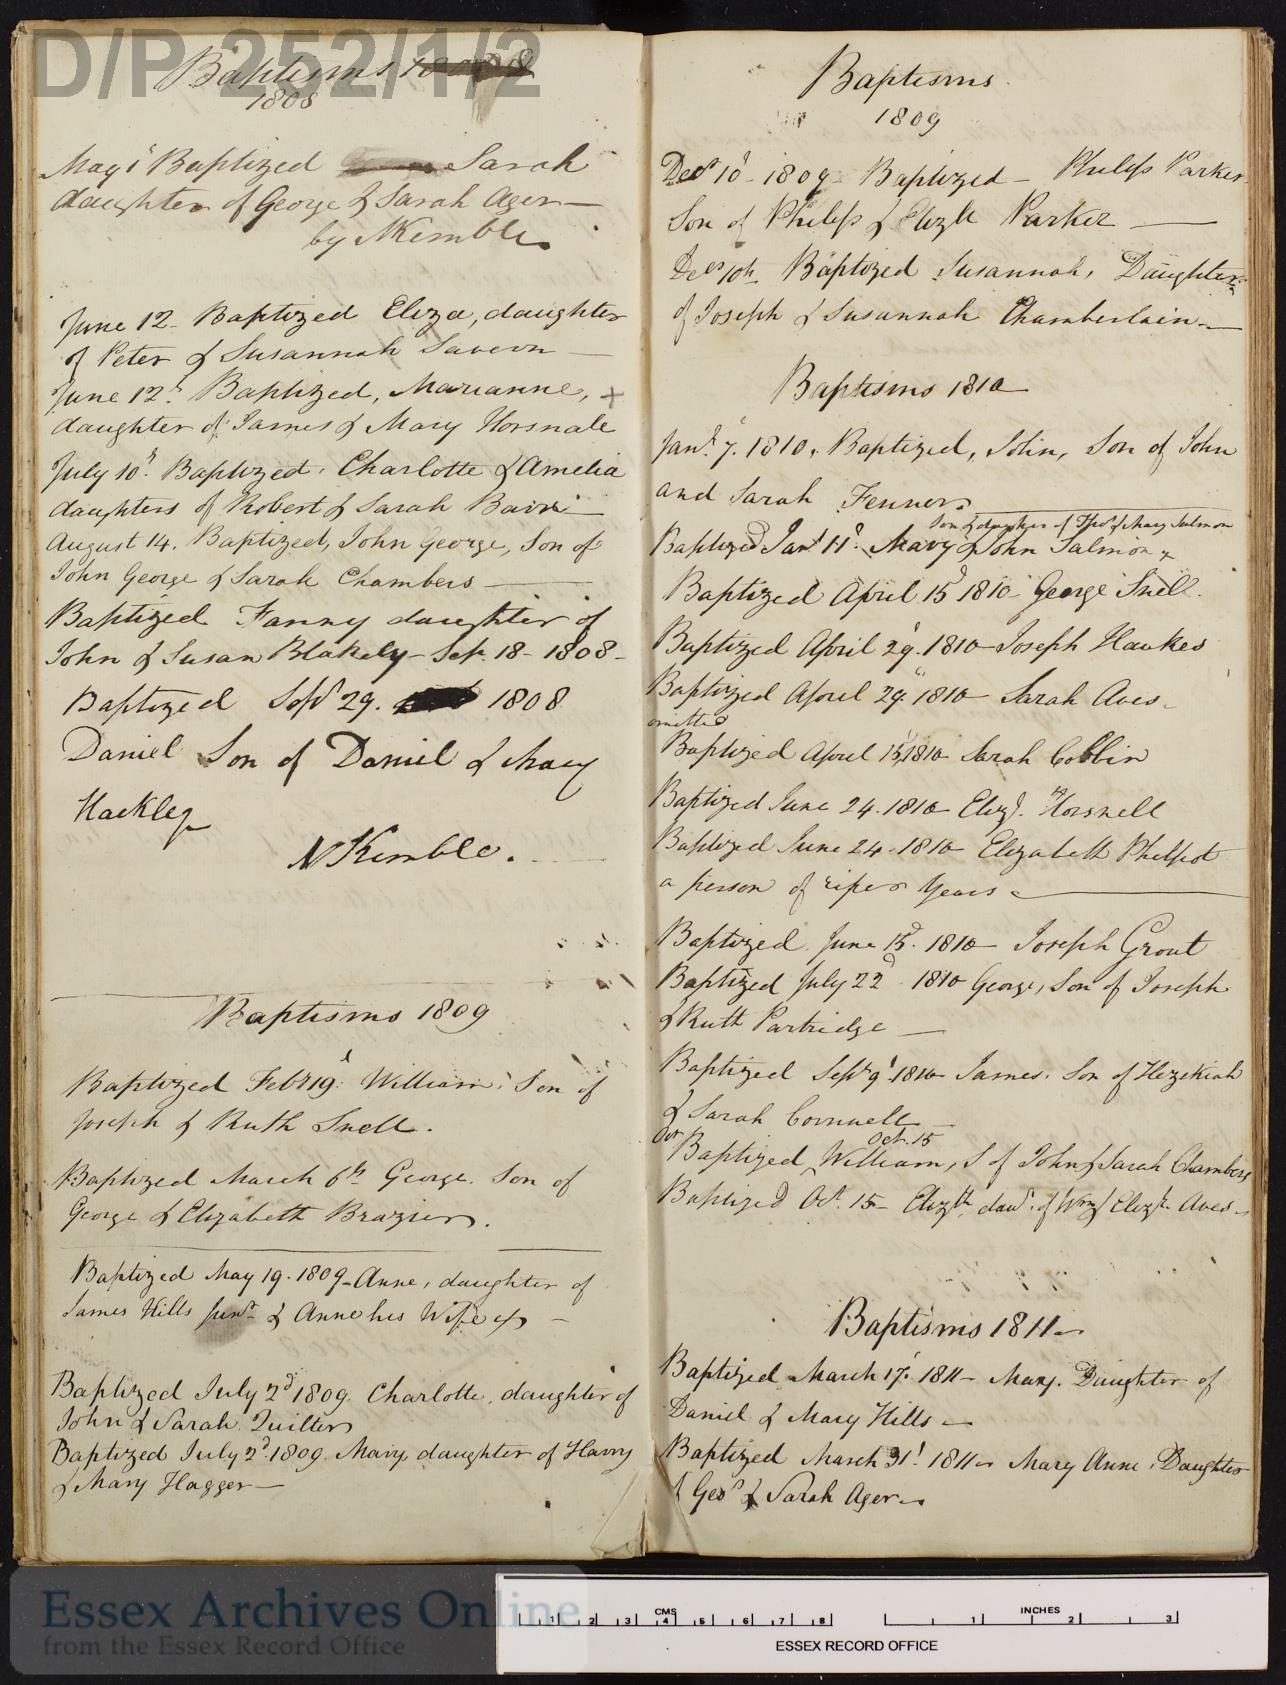 D/P 252/1/2
Baptisms
1808
May 1st Baptized Sarah
daughter of George & Sarah Ager—
by N Kemble.
June 12 - Baptized Eliza, daughter
of Peter & Susannah Savern —
June 12th Baptized, Marianne, +
daughter of James & Mary Horsnale
July 10th. Baptized, Charlotte & Amelia
daughters of Robert & Sarah
August 14. Baptized, John George, Son of
John George & Sarah Chambers —
Baptized Fanny daughter of
John & Susan Blakely - Sep. 18 - 1808 -
Baptized Sepr 29. 1808
Daniel Son of Daniel & Mary
Hackley
N Kemble.
Baptisms 1809
Baptized Febr 19th William, Son of
Joseph & Ruth Snell.
Baptized March 6th George. Son of
George & Elizabeth Brazier.
Baptized May 19. 1809 - Anne, daughter of
James Hills junr & Anne his Wife —
Baptized July 2d 1809. Charlotte, daughter of
John & Sarah Quilter
Baptized July 2d. 1809. Mary daughter of Harry
& Mary Hagger —
Baptisms.
1809
Decr 10th - 1809 - Baptized - Philip Parker
Son of Philip & Elizth Parker —
Decr 10th Baptized Susannah, Daughter
of Joseph & Susannah Chamberlain —
Baptisms 1810
Jany 7. 1810. Baptized, John, Son of John
and Sarah Fenner
Son & daughter of Thos & Mary Salmon
Baptized Jany Mary & John Salmon +
Baptized April 15th 1810 George Snell.
Baptized April 29th. 1810 - Joseph Hawkes
Baptized April 29th. 1810 - Sarah Aves.
omitted
Baptized April 15th, 1810 - Sarah Cobbin
Baptized June 24. 1810 - Elizh. Horsnell
Baptized June 24 - 1810 - Elizabeth Philpot
a person of riper Years —
Baptized June 1810 - Joseph Grout
Baptized July 22d 1810 George, Son of Joseph
& Ruth Partridge —
Baptized Sepr 9th 1810 - James. Son of Hezekiah
& Sarah Cornwell
Oct. 15
Baptized William, S of John & Sarah Chambers
Baptized Oct. 15 - Elizth daur. of Wm & Elizth Aves -
Baptisms 1811 -
Baptized March 17th. 1811 - Mary. Daughter of
Daniel & Mary Hills —
Baptized March 31st. 1811 - Mary Anne, Daughter
of Geo & Sarah Ager -
Essex Archives Online
from the Essex Record Office
CMS
1 2 3 4 5 6 7 8
INCHES
1 2 3
ESSEX RECORD OFFICE